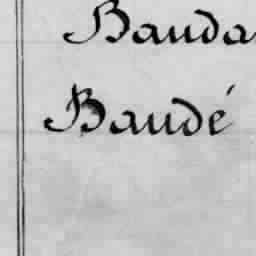 Bauda
Baudé